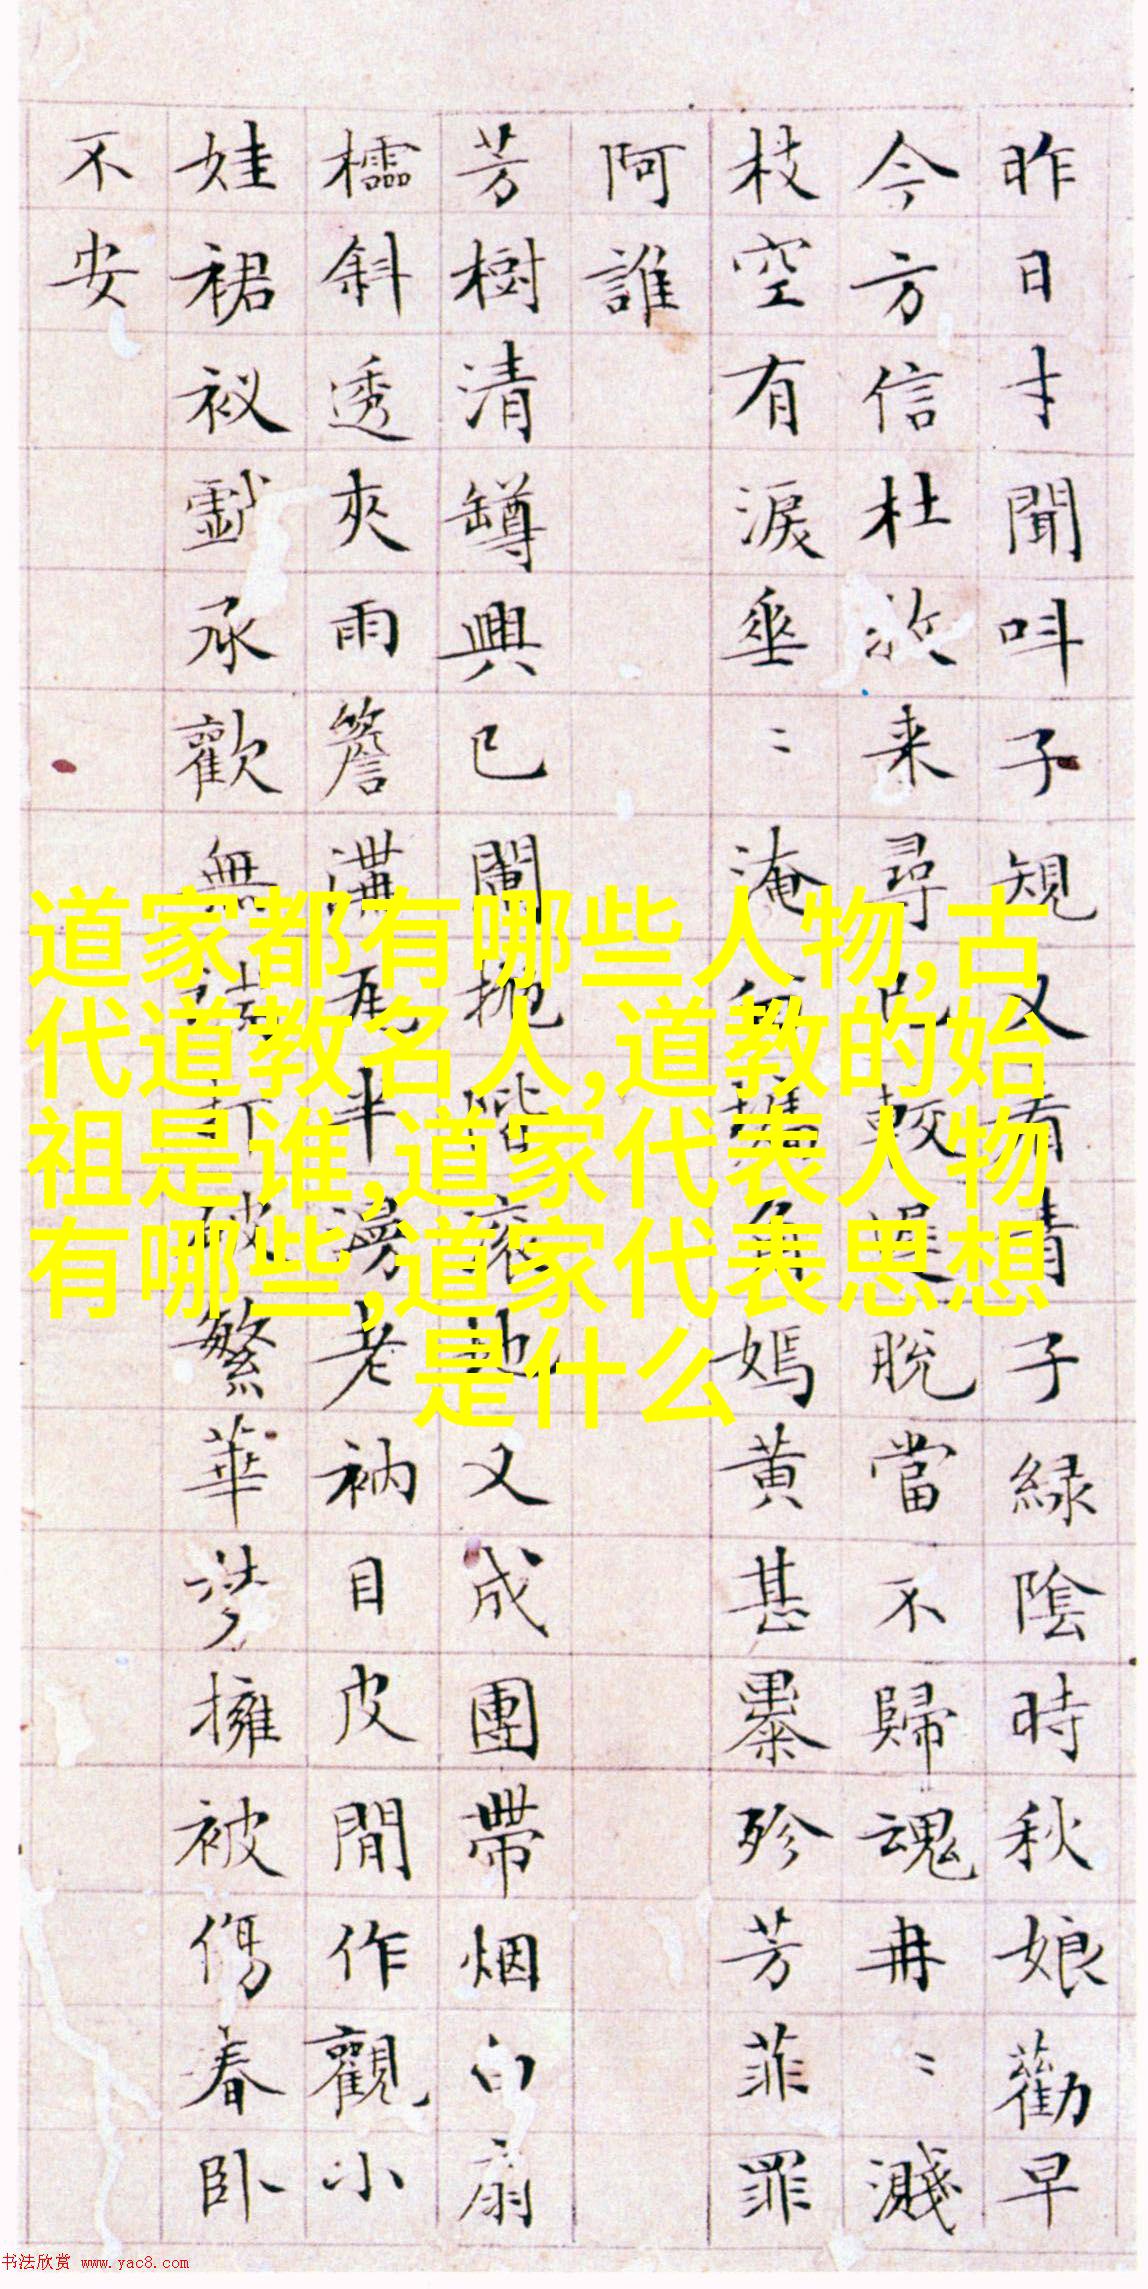 昨日才聞叫子規又有青子緑陰時秋娘勸早
今方信杜牧来尋較脫當不歸魂冉〻濺
枝空有淚垂〻淹嫣黄甚暴殄芳菲罪
阿誰
芳樹清罇興已闌拋階滾地又成團帶烟白扇
櫺斜透夾雨簷溝瓦半漫老衲目皮閒作觀小
娃裙衩戲承歡無打破繁華夢擁被傷春卧
不安
道家都有哪些人物,古
代道教名人,道教的始
祖是谁,道家代表人物
有哪些,道家代表思想
是什么
书法欣赏 www.yac8.com